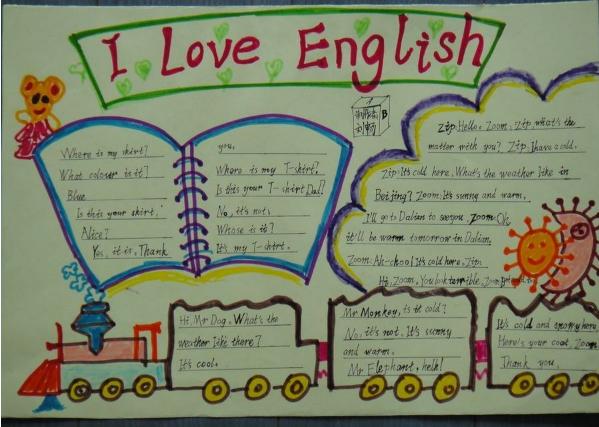 I Love English
B
Where is my skirt?
What colour is it?
Blue
Is this your skirt,
Alice?
Yes, it is, Thank
you,
Where is my T-shirt,
Is this your T-shirt Dad?
No, it's not,
Whose is it?
It's my T-shirt.
Zip: Hello, Zoom, Zip, what's the
matter with you? Zip: I have a cold.
Zip: It's cold here, What's the weather like in
Beijing? Zoom: It's sunny and warm.
I'll go to Dalian to see you, Zoom: Oh
it'll be warm tomorrow in Dalian.
Zoom: Ah-choo! It's cold here, Zip.
Hi, Zoom, You look terrible, Zoom
Hi, Mr Dog, What's the
weather like there?
It's cool,
Mr Monkey, is it cold?
No, it's not. It's sunny
and warm,
Mr Elephant, hello!
It's cold and snowy here,
Here's your coat, Zoom
Thank you,